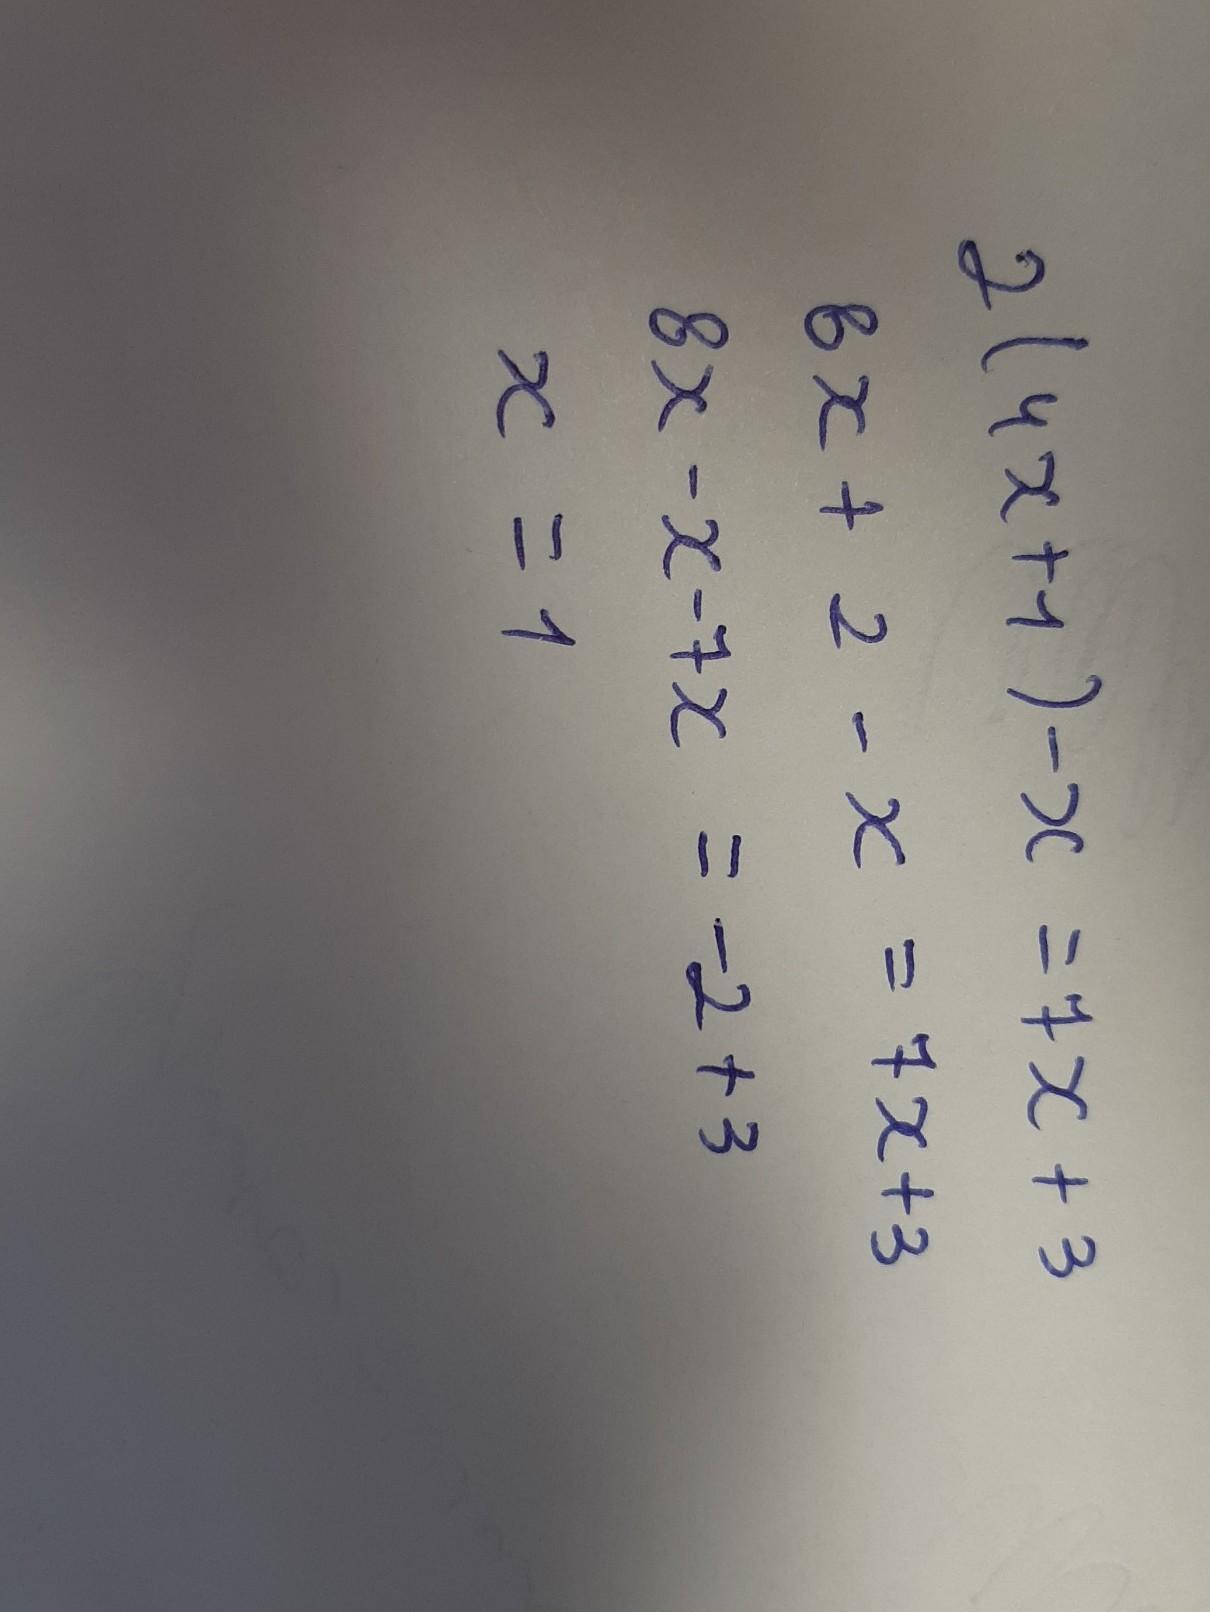 2(4x+1)-x=7x+3
8x+2-x=7x+3
8x-x-7x=-2+3
x=1